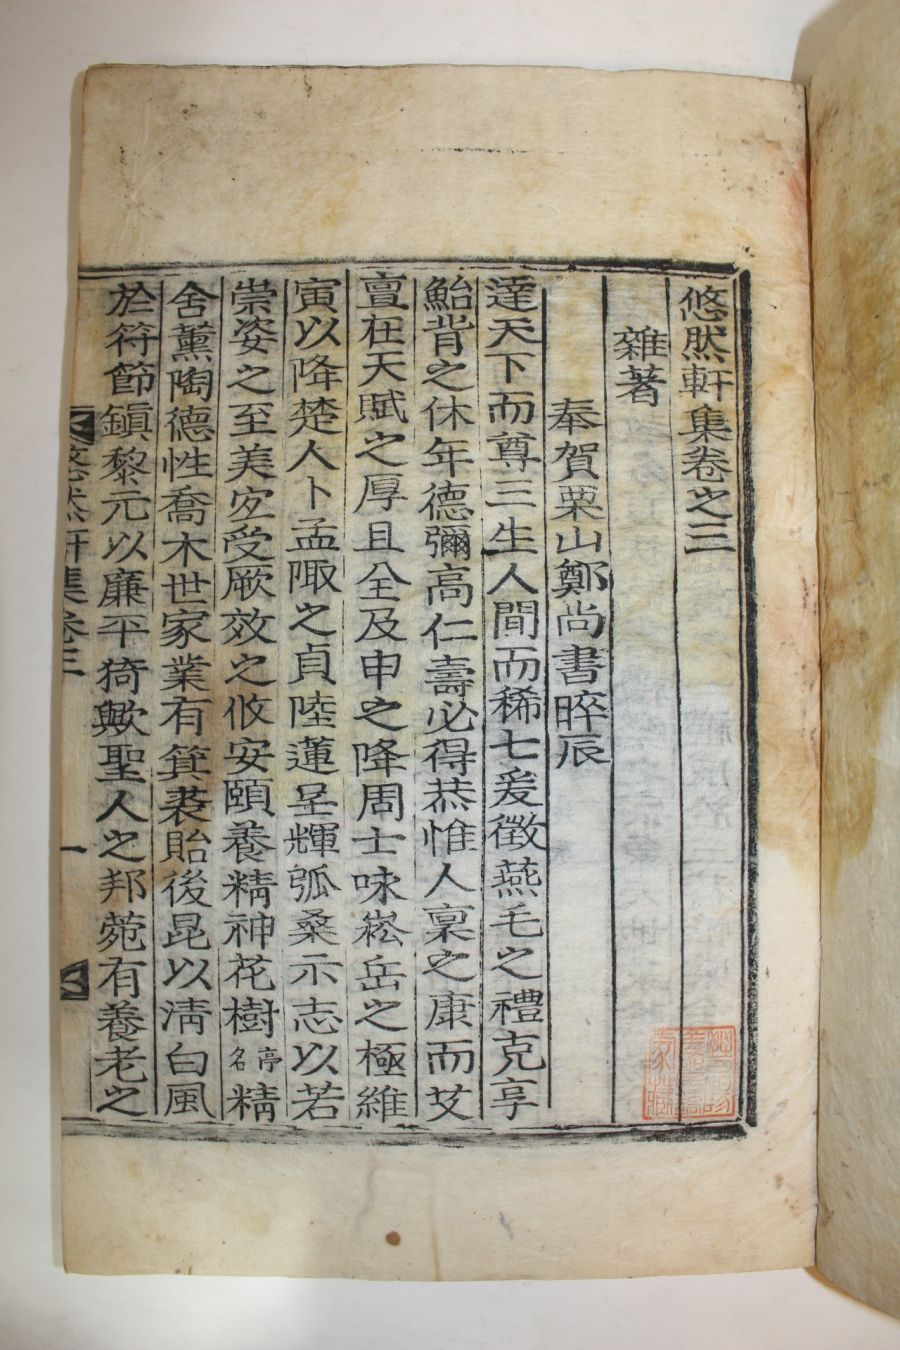 悠然軒集卷之三
雜著
奉賀栗山鄭尚書晬辰
達天下而尊三生人間而稀七爰徵燕毛之禮克享
鮐背之休年德彌高仁壽必得恭惟人稟之康而艾
亶在天賦之厚且全及申之降周士咏崧岳之極維
寅以降楚人卜孟陬之貞陸蓮呈輝弧桑示志以若
崇姿之至美宜受厥效之攸安頤養精神花樹亭名精
舍薰陶德性喬木世家業有箕裘貽後昆以淸白風
於符節鎭黎元以廉平猗歟聖人之邦菀有養老之
悠然軒集卷三
一